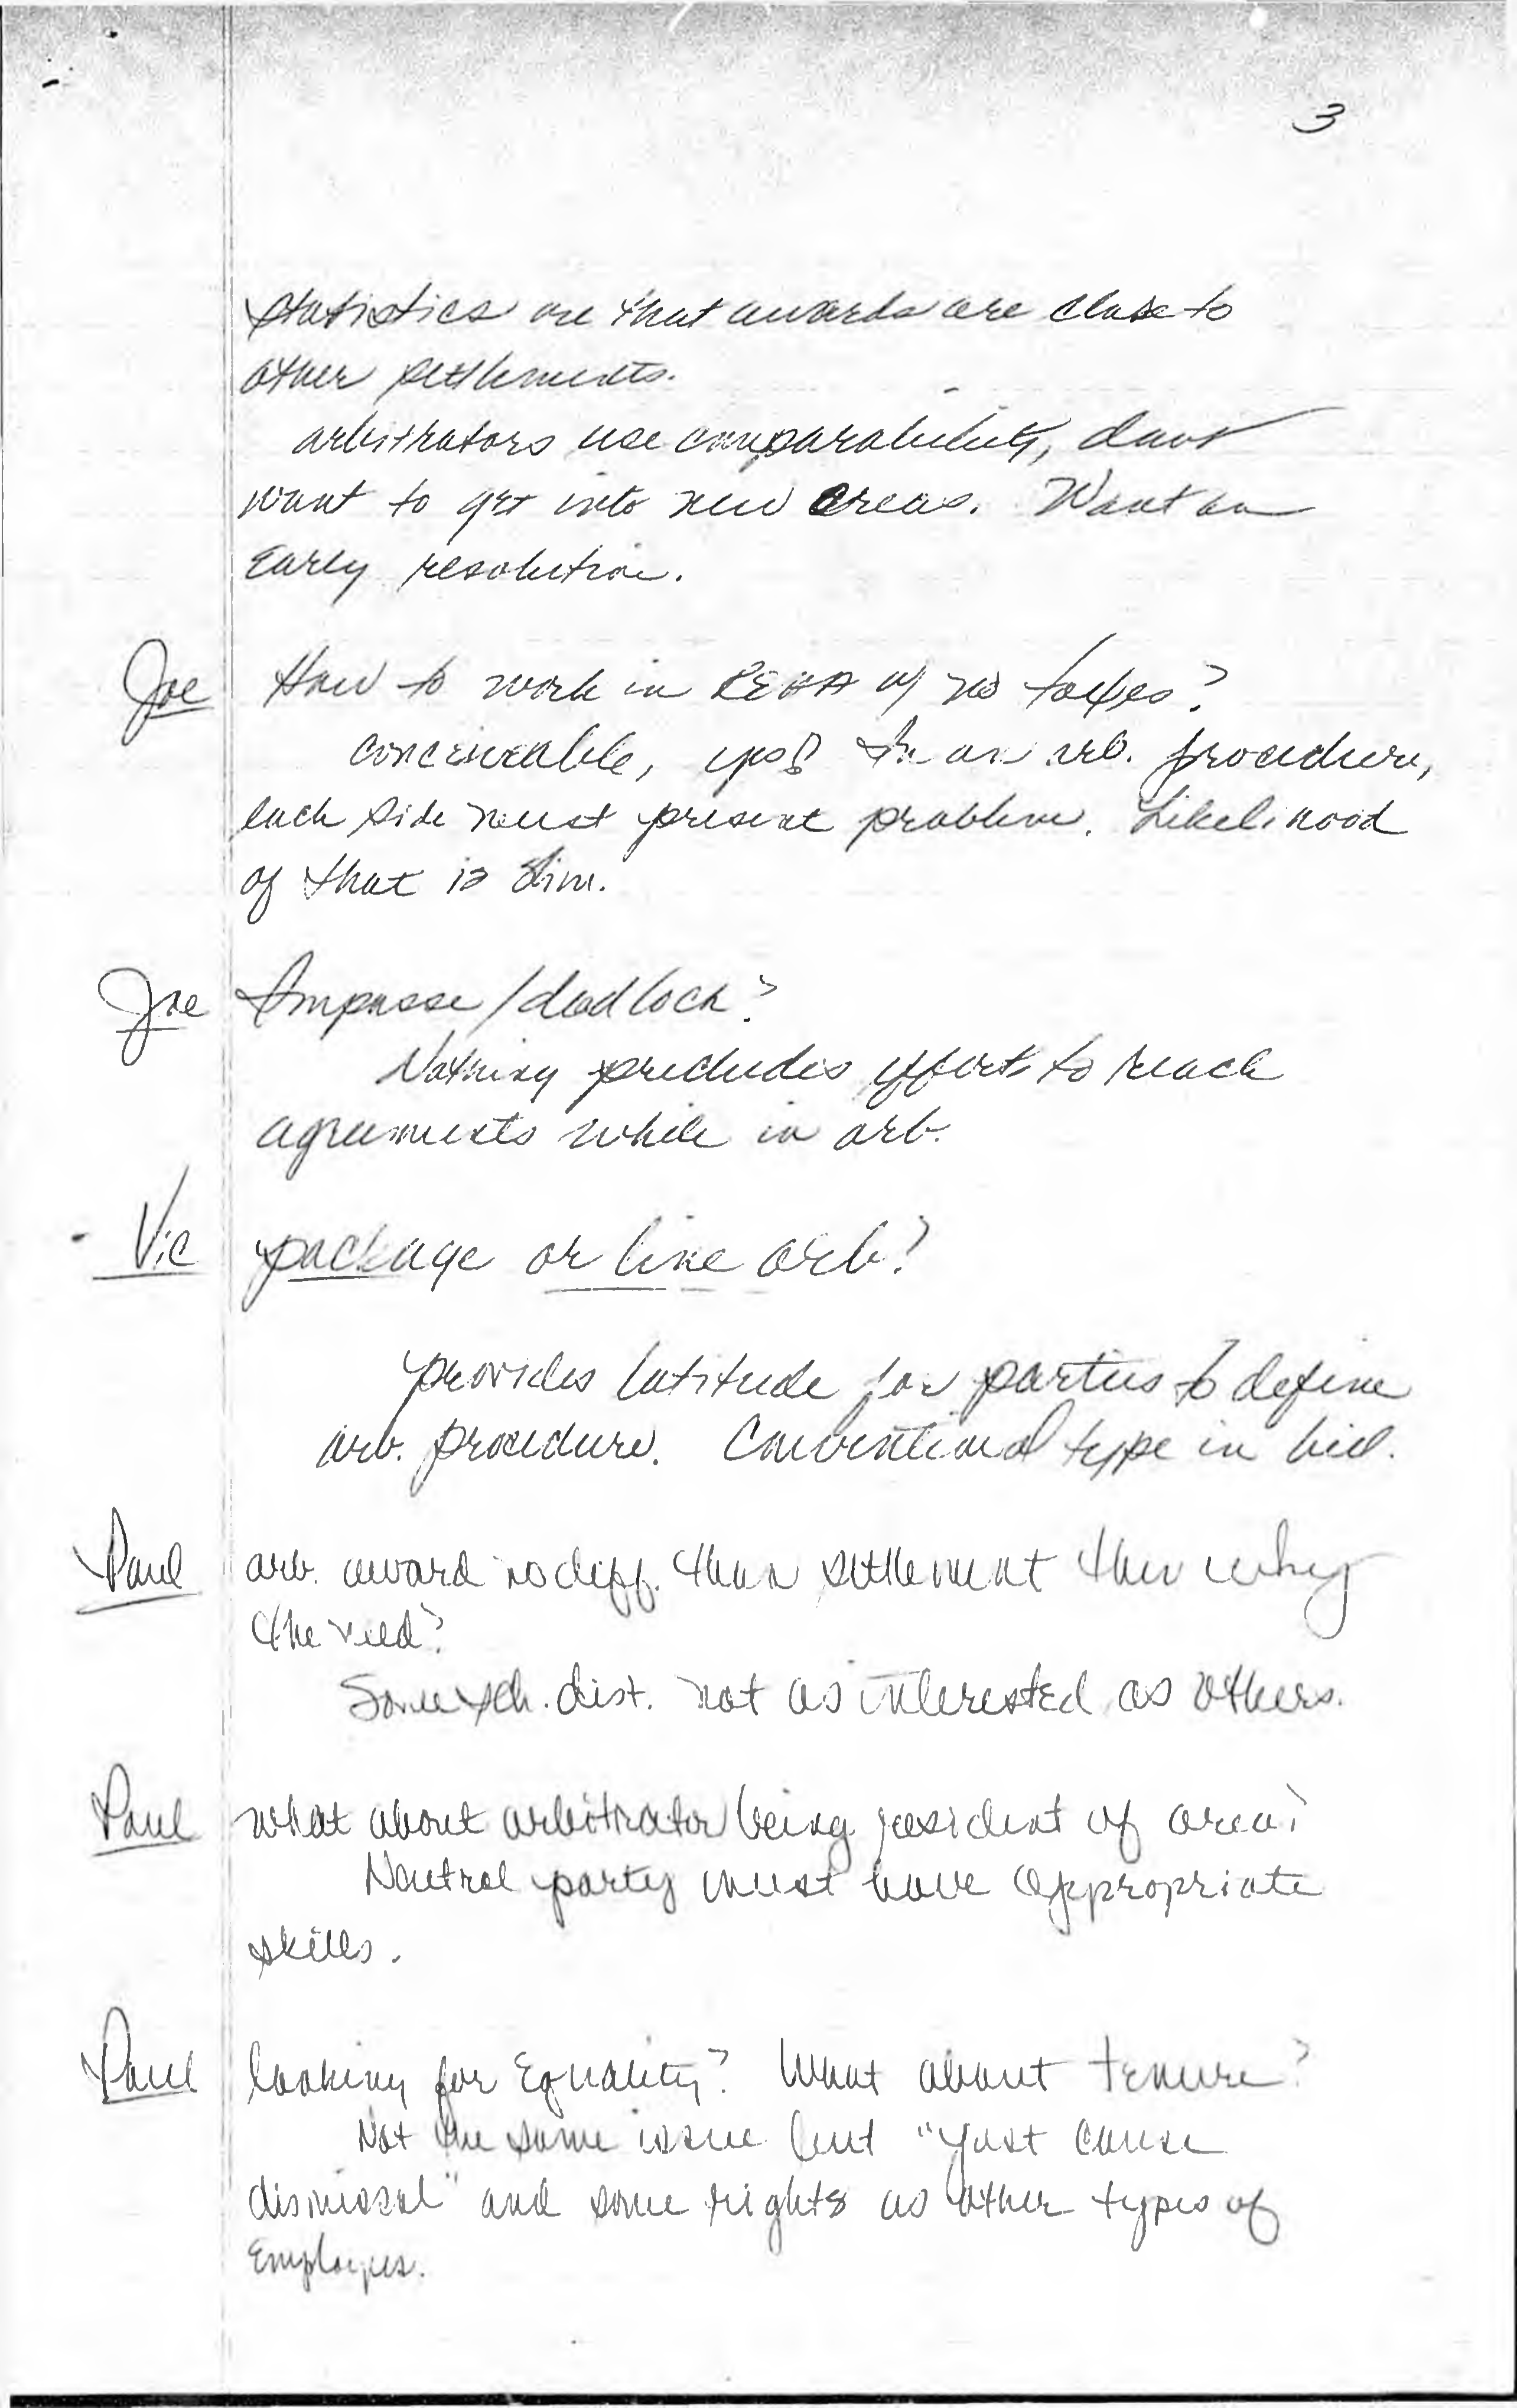 3
statistics are that awards are close to
other settlements.
arbitrators use comparability, dont
want to get into new areas. Want an
early resolution.
Joe How to work in REAA w/ no taxes?
conceivable, yes! In an arb. procedure,
each side must present problem. Likelihood
of that is slim.
Joe Impasse/deadlock?
Nothing precludes efforts to reach
agreements while in arb.
Vic package or line arb?
provides latitude for parties to define
arb. procedure. Conventional type in bill.
Paul arb. award no diff. than settlement then why
the need?
Some sch. dist. not as interested as others.
Paul what about arbitrator being resident of area?
Neutral party must have appropriate
skills.
Paul looking for Equality? What about tenure?
Not the same issue but "just cause
dismissal" and some rights as other types of
Employees.